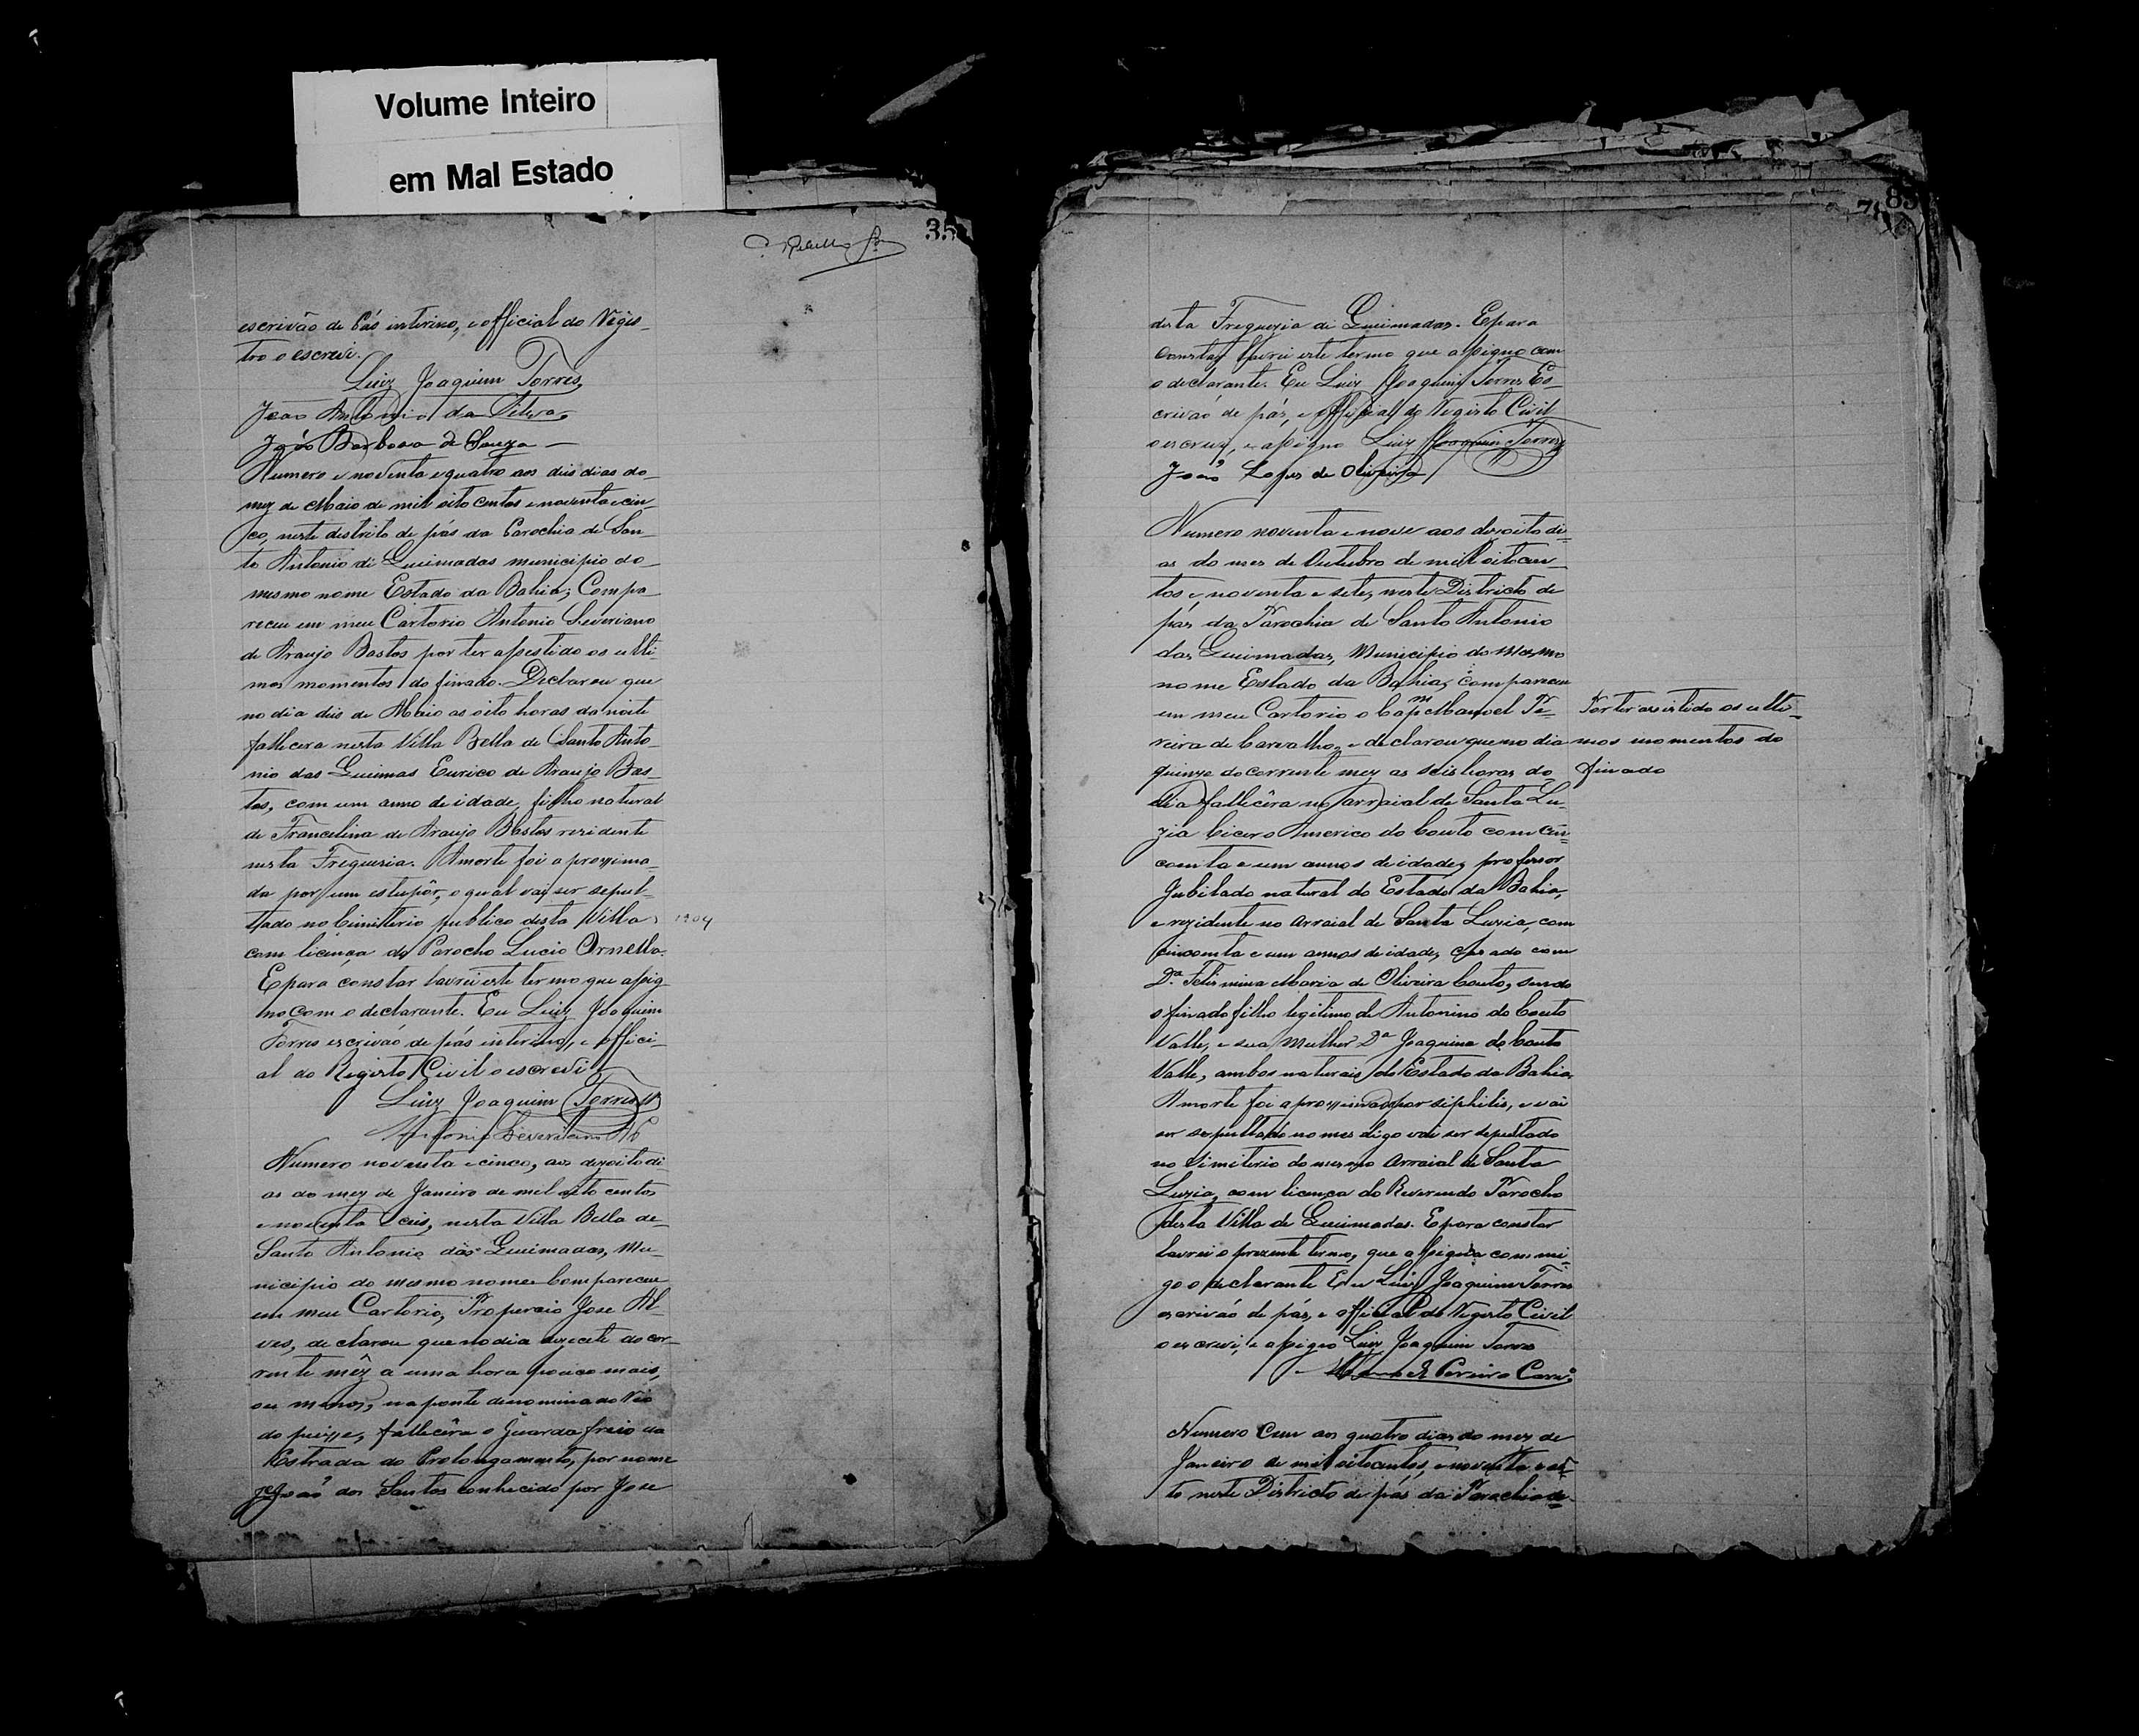 Volume Inteiro
em Mal Estado
35
escrivão de Pás interino, e official do Regis-
tro o escrevi.
Luiz Joaquim Torres
João Antonio da Silva
João Barboza de Souza
Numero e noventa e quatro aos dois dias do
mez de Maio de mil oito centos e noventa e cin-
co, neste distrito de pás da Parochia de San-
to Antonio di Queimadas municipio do
mesmo nome Estado da Bahia; Compa
receu em meu Cartorio Antonio Severiano
de Araujo Bastos por ter assestido os ulti-
mos momentos do finado. Declarou que
no dia dois de Maio as oito horas da noite
fallecera nesta Villa Bella de Santo Anto-
nio das Queimas Eurico de Araujo Bas-
tos, com um anno de idade, filho natural
de Francelina de Araujo Bastos rezidente
nesta Freguezia. A morte foi a proxima-
da por um estupôr, o qual vai ser sepul-
tado no Cimiterio publico desta Villa 1904
com licença do Parocho Lucio Ornella.
E para constar lavrei este termo que assig
no com o declarante. Eu Luiz Joaquim
Torres escrivão de pás interino, e offici-
al do Registo Civil o escrevi
Luiz Joaquim Torres
Antonio Severiano
Numero noventa e cinco, aos dezoito di-
as do mez de Janeiro de mil oito centos
e noventa e seis, nesta Villa Bella de
Santo Antonio das Queimadas, Mu-
nicipio do mesmo nome Compareceu
em meu Cartorio, Propercio Jose Al-
ves, declarou que no dia dezecete do cor-
rente mêz a uma hora pouco mais,
ou menos, na ponte denominado Rio
do peixe, fallecêra o Guarda freio da
Estrada do Prolongamento, por nome
João dos Santos conhecido por Jose
83
desta Freguezia di Queimadas. E para
constar lavrei este termo que assigno com
o declarante. Eu Luiz Joaquim Torres Es-
crivão de pás, e official do Registo Civil
o escrevy, e assigno Luiz Joaquim Torres
João Lopes de Oliveira
Numero noventa e nove aos dezoito di-
as do mes de Outubro de mil oitocen-
tos e noventa e sete, neste Districto de
pás da Parochia de Santo Antonio
das Queimadas, Municipio do mesmo
nome Estado da Bahia, compareceu
em meu Cartorio o Capm Manoel Pe-
reira de Carvalho, e declarou que no dia
Por ter assistido os ulti-
mos momentos do
finado
quinze do corrente mez as seis horas do
dia fallecêra no Arraial de Santa Lu-
zia Cicero Americo do Couto com cin-
coenta e um annos de idade, professor
Jubilado natural do Estado da Bahia,
e rezidente no Arraial de Santa Luzia, com
cincoenta e um annos de idade, cazado com
Da. Felismina Maria de Oliveira Couto, sendo
o finado filho legitimo de Antonino do Couto
Valle, e sua Mulher Da Joaquina do Couto
Valle, ambos naturais do Estado da Bahia
A morte foi aproximada por siphilis, e vai
ser sepultado no mes digo vai ser sepultado
no Simiterio do mesmo Arraial de Santa
Luzia, com licença do Reverendo Parocho
desta Villa de Queimadas. E para constar
lavrei o prezente termo, que assigna com mi-
go o declarante Eu Luiz Joaquim Torres
escrivão de pás, e official do Registo Civil
o escrevi, e assigno Luiz Joaquim Torres
Manoel Pereira Carvo
Numero Cem aos quatro dias do mez de
Janeiro de mil oitocentos, e noventa e oi-
to neste Districto de pás da Parochia de